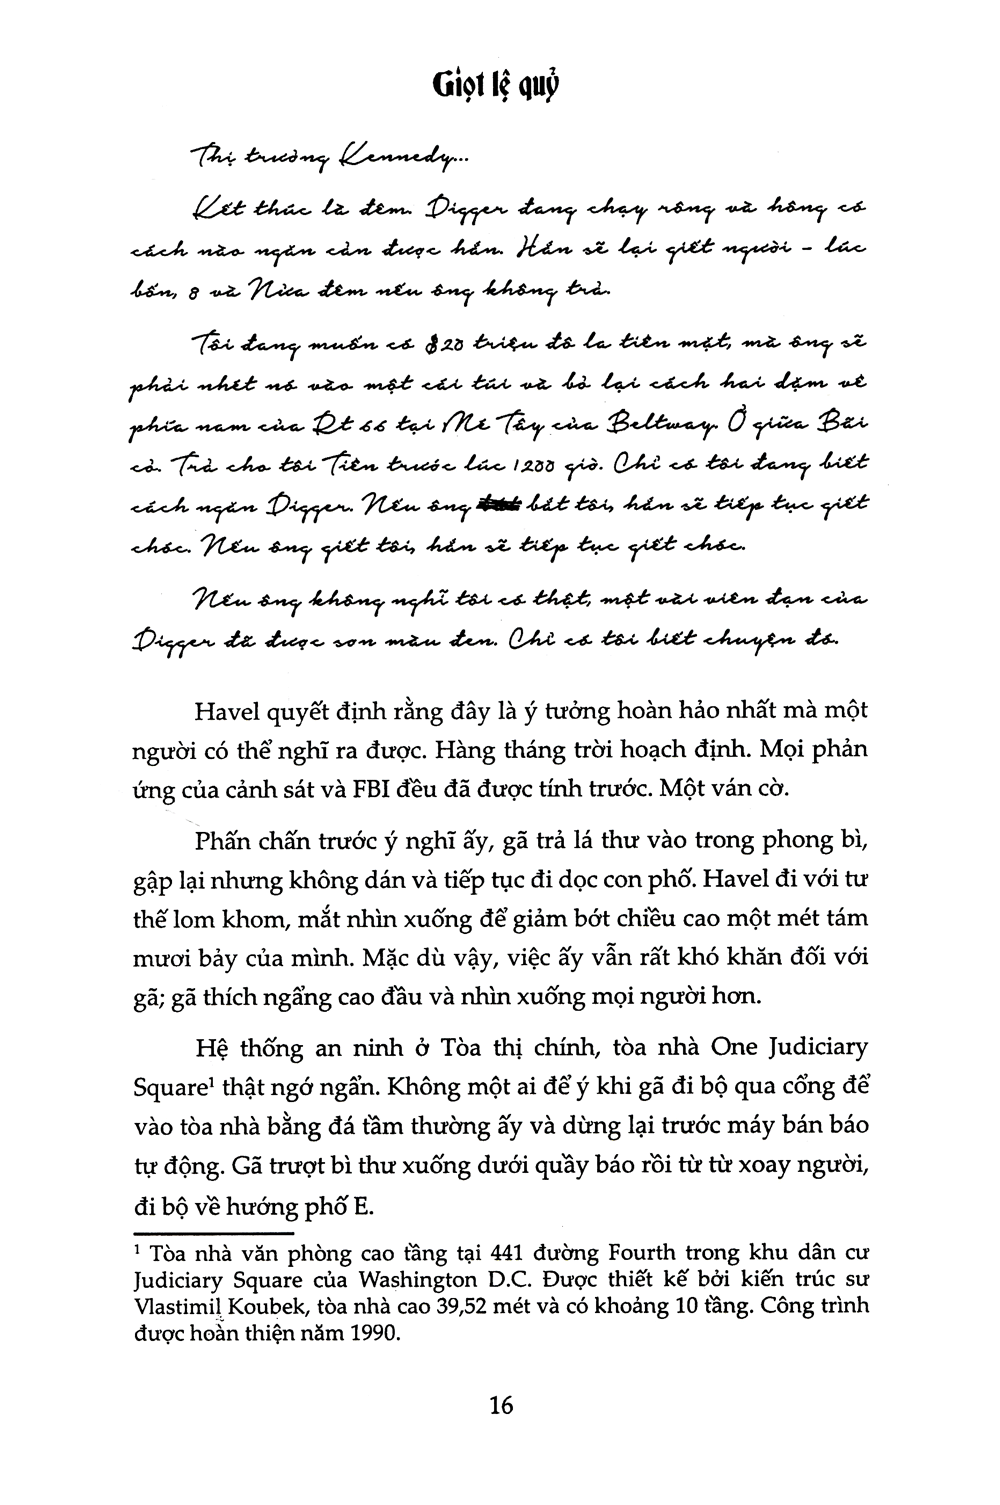 Giọt lệ quỷ
Thị trưởng Kennedy...
Kết thúc là đêm. Digger đang chạy rông và hông có
cách nào ngăn cản được hắn. Hắn sẽ lại giết người – lúc
bốn, 8 và Nửa đêm nếu ông không trả.
Tôi đang muốn có $20 triệu đô la tiền mặt, mà ông sẽ
phải nhét nó vào một cái túi và bỏ lại cách hai dặm về
phía nam của Rt 66 tại Mé Tây của Beltway. Ở giữa Bãi
cỏ. Trả cho tôi Tiền trước lúc 1200 giờ. Chỉ có tôi đang biết
cách ngăn Digger. Nếu ông bắt tôi, hắn sẽ tiếp tục giết
chóc. Nếu ông giết tôi, hắn sẽ tiếp tục giết chóc.
Nếu ông không nghĩ tôi có thật, một vài viên đạn của
Digger đã được sơn màu đen. Chỉ có tôi biết chuyện đó.
Havel quyết định rằng đây là ý tưởng hoàn hảo nhất mà một
người có thể nghĩ ra được. Hàng tháng trời hoạch định. Mọi phản
ứng của cảnh sát và FBI đều đã được tính trước. Một ván cờ.
Phấn chấn trước ý nghĩ ấy, gã trả lá thư vào trong phong bì,
gập lại nhưng không dán và tiếp tục đi dọc con phố. Havel đi với tư
thế lom khom, mắt nhìn xuống để giảm bớt chiều cao một mét tám
mươi bảy của mình. Mặc dù vậy, việc ấy vẫn rất khó khăn đối với
gã; gã thích ngẩng cao đầu và nhìn xuống mọi người hơn.
Hệ thống an ninh ở Tòa thị chính, tòa nhà One Judiciary
Square¹ thật ngớ ngẩn. Không một ai để ý khi gã đi bộ qua cổng để
vào tòa nhà bằng đá tầm thường ấy và dừng lại trước máy bán báo
tự động. Gã trượt bì thư xuống dưới quầy báo rồi từ từ xoay người,
đi bộ về hướng phố E.
¹ Tòa nhà văn phòng cao tầng tại 441 đường Fourth trong khu dân cư
Judiciary Square của Washington D.C. Được thiết kế bởi kiến trúc sư
Vlastimil Koubek, tòa nhà cao 39,52 mét và có khoảng 10 tầng. Công trình
được hoàn thiện năm 1990.
16